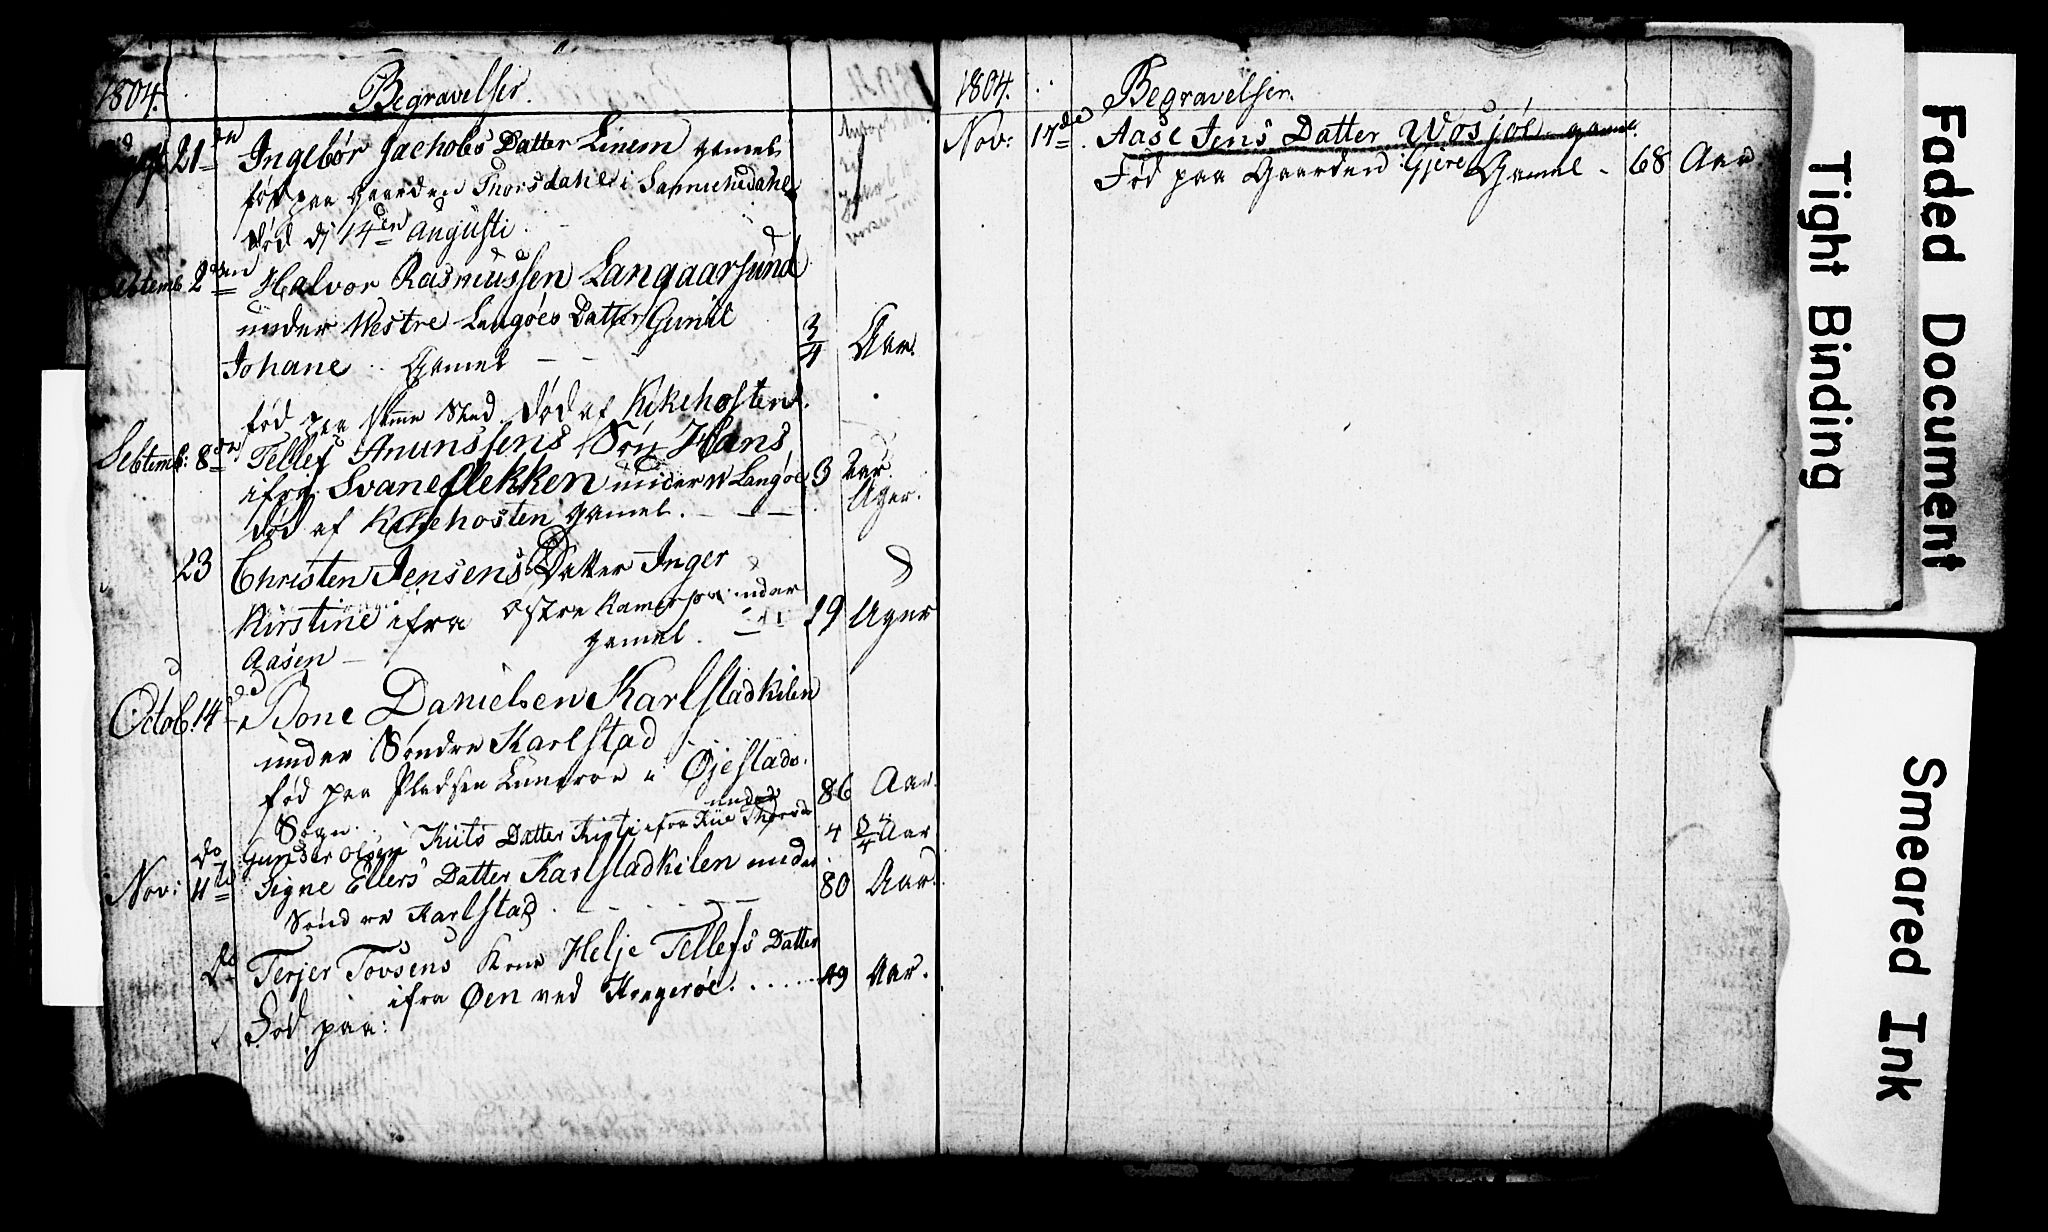 1804.
Begravelser.
21de Ingebör Jachobs Datter Linem gamel
föd paa Gaarden Thorsdahl i Sannichedahl
död d 14den Augusti
Septemb. 2den Halvor Rasmussen Langaarsund
under Westre Langöes Datter Gunil
Johane .. Gamel - - 3/4 Aar.
föd paa samme Sted. död af Kikehosten.
Septemb: 8de Tellef Anunssens Sön Hans
ifra Svaneflekken under W Langöe 3 Aar
död af Kikehosten gamel. - - - Uger.
23 Christen Jensens Datter Inger
Kirstine ifra Östre under 19 Uger
Aasen - gamel.
Octob. 14de Bone Danielsen Karlstadkilen
under Söndre Karlstad
föd paa Pladsen i Øjestads
Sogn .. 86 Aar.
under
do Gunder Olsen Kiils Datter Kirsti ifra 4 3/4 Aar
Nov: 11te Signe Ellers Datter Karlstadkilen under
Söndre Karlstad . - - 80 Aar
do Terjer Tovsens Kone Helje Tellefs Datter
ifra Øen ved Kragerøe. . . . . . 49 Aar.
Föd paa:
1804.
Begravelser.
Nov: 17de. Aase Jens Datter Wosjøe gamel.
Föd paa Gaarden Gjere Gamel - 68 Aar
Faded Document
Tight Binding
Smeared Ink